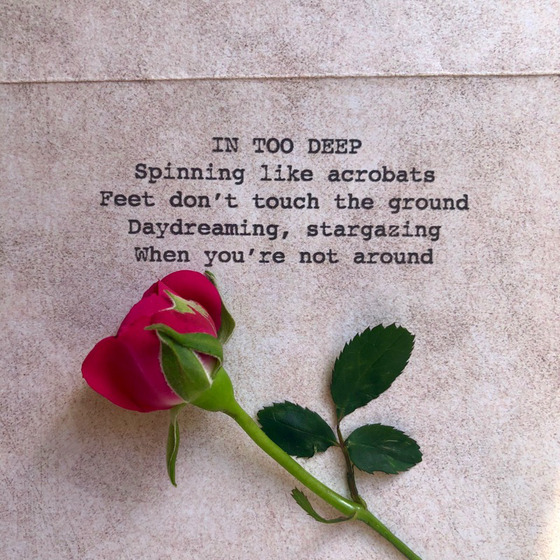 IN TOO DEEP
Spinning like acrobats
Feet don’t touch the ground
Daydreaming, stargazing
When you’re not around